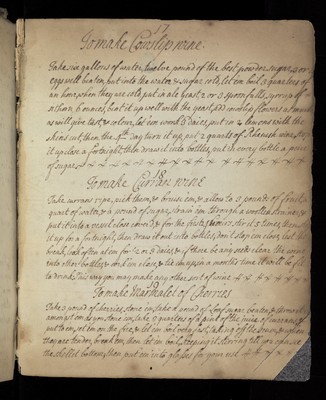 17
To make Cowslip wine.
Take six gallons of water, twelve pound of the best powder sugar, 3 or
eggs well beaten, put into the water & sugar cold, let em boil 3 quarters of
an hour, when they are cold, put in ale yeast 2 or 3 spoonfulls, syrrop of
sittorn 6 ounces, beat it up well with the yeast, add cowslip flowers as much
as will give tast & colour, let em work 3 daies, put in 2 lemons with the
skins cut, then the 4th day turn it up put 2 quarts of Rhenish wine,
it up close a fortnight, then draw it into bottles, put in every bottle a peice
of sugar
18
To make Curran wine
Take currans ripe, pick them, & bruise em, & allow to 3 pounds of fruit a
quart of water, & a pound of sugar, strain em through a woollen strainer, &
put it into a vessel close covered, for the first, stir it 3 times, then
it up for a fortnight, then draw it out into bottles, don't stop em close, least they
break, look often at em for 1 or 2 daies, & if there be any not clear,
into other bottles, & stop em close, & tie em, upon a months time it will be fit
to drink. This way you may make any other sort of wine
19
To make Marmalet of Cherries
Take 5 pound of cherries, stone em, take a pound of loaf sugar beaten, & strew it
amongst em as you stone em, take 3 quarters of a pint of the juice of currans,
put to em, set em on the fire, & let em boil very fast, taking off the scum, & when
they are tender, break em, then let em boil, keeping it stirring till you can see
the skellet bottom, then put em into glasses for your use